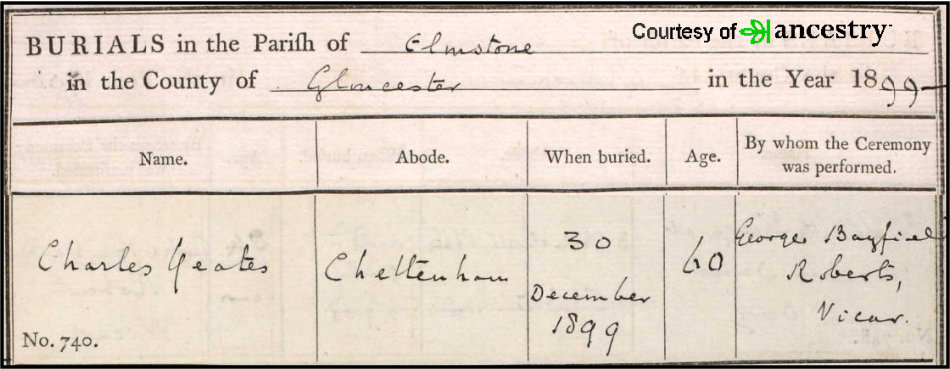 Courtesy of ancestry
BURIALS in the Parish of Elmstone
in the County of Gloucester in the Year 1899
Name. Abode. When buried. Age. By whom the Ceremony
was performed.
Charles Yeates Cheltenham 30 60 George Bayfield
December Roberts,
1899 Vicar.
No. 740.